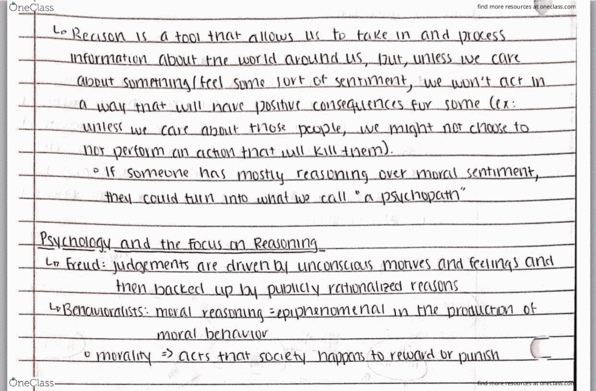 OneClass
find more resources at oneclass.com
↳ Reason is a tool that allows us to take in and process
information about the world around us, but, unless we care
about something/feel some sort of sentiment, we won't act in
a way that will have positive consequences for some (ex:
unless we care about those people, we might not choose to
not perform an action that will kill them).
◦ If someone has mostly reasoning over moral sentiment,
they could turn into what we call "a psychopath"
Psychology and the focus on Reasoning
↳ Freud: judgements are driven by unconscious motives and feelings and
then backed up by publicly rationalized reasons
↳ Behavioralists: moral reasoning = epiphenomenal in the production of
moral behavior
◦ morality => acts that society happens to reward or punish
OneClass
find more resources at oneclass.com